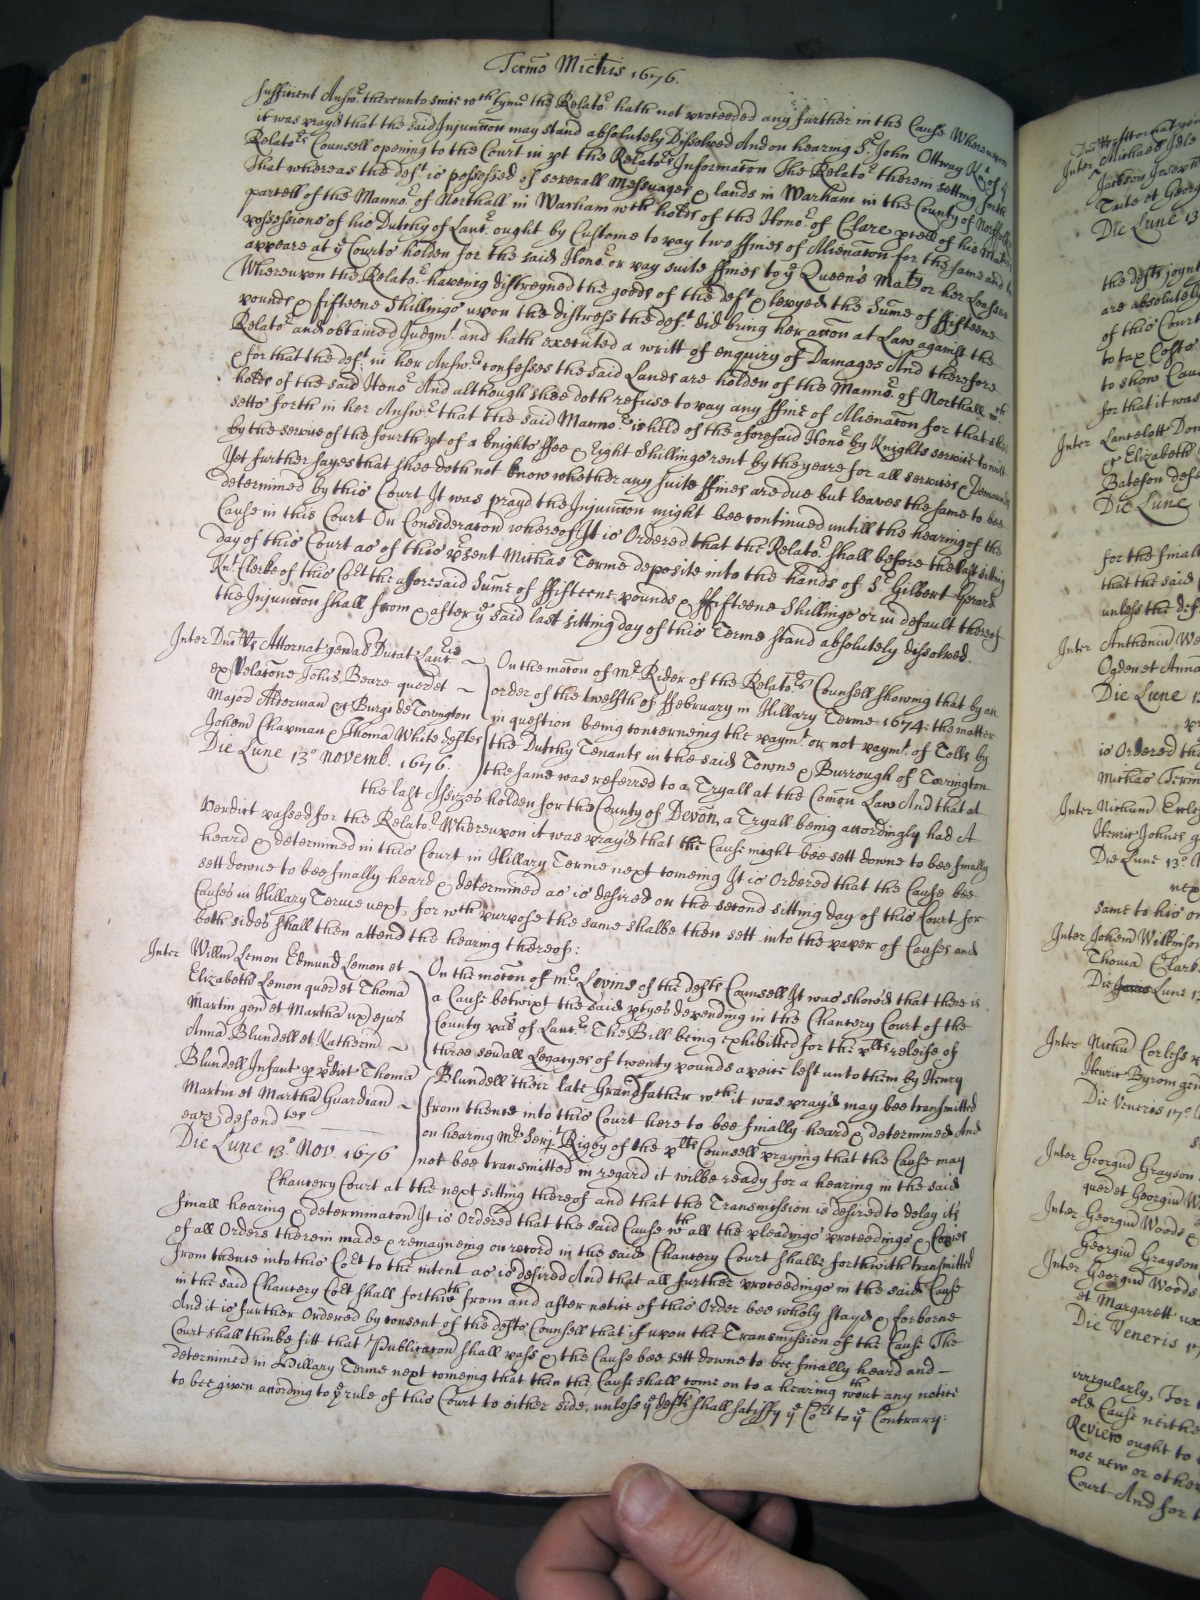 Termo Michis 1676.
sufficient Answr. thereunto since wch tyme the Relator hath not proceeded any further in the Cause Whereupon
it was prayd that the said Injunccon may stand absolutely Dissolved And on hearing Sr. John Ottway Kt. of ye
Relators Counsell opening to the Court in pt the Relators Informacon The Relator therein setting forth
That whereas the deft. is possessed of severall Messuages & lands in Warham in the County of Norffolk
parcell of the Mannor. of Northall in Warham wch holds of the Honor. of Clare pcell of his Maties
possessions of his Dutchy of Lanc. ought by Custome to pay two ffines of Alienacon for the same and to
appeare at ye Courts holden for the said Honor. or pay suite ffines to ye Queen's Maty or her Leassees
Whereupon the Relator. haveing distreyned the goods of the deft & levyed the Sume of ffifteene
pounds & fifteene Shillings upon the distress the deft. did bring her accon at Law against the
Relator and obtained Judgmt. and hath executed a writt of enquiry of Damages And therefore
& for that the deft. in her Answr. confesses the said Lands are holden of the Mannor. of Northall wch
holds of the said Honor And although shee doth refuse to pay any ffine of Alienacon for that shee
setts forth in her Answr. that the said Mannor. is held of the aforesaid Honor by Knights service to witt
by the service of the fourth pt of a knights ffee & Eight Shillings rent by the yeare for all services & Demands
Yet further sayes that shee doth not know whether any suite ffines are due but leaves the same to bee
determined by this Court It was prayd the Injunccon might bee continued untill the hearing of the
Cause in this Court On Consideracon whereof It is Ordered that the Relator. shall before the last sitting
day of this Court as of this present Michas Terme deposite into the hands of Sr. Gilbert Gerard
Knt. Clerke of this Cort the aforesaid Sume of ffifteene pounds & ffifteene Shillings or in default thereof
the Injunccon shall from & after ye said last sitting day of this Terme stand absolutely dissolved.
Inter Attornat genal Ducat Lanc
ex relatione Johis Beare quer et
Major Alderman & Burgs de Torington
Johem Chapman & Thoma White defts
Die Lune 13o. novemb. 1676.
On the mocon of mr. Rider of the Relators Counsell showing that by an
order of the twelfth of ffebruary in Hillary Terme 1674: the matter
in question being concerneing the paymt. or not paymt. of Tolls by
the Dutchy Tenants in the said Towne & Burrough of Torrington
the same was referred to a Tryall at the Comon Law And that at
the last Assizes holden for the County of Devon, a Tryall being accordingly had A
Verdict passed for the Relator. Whereupon it was prayd that the Cause might bee sett downe to bee finally
heard & determined in this Court in Hillary Terme next comeing It is Ordered that the Cause bee
sett downe to bee finally heard & determined as is desired on the second sitting day of this Court for
Causes in Hillary Terme next, for wch purpose the same shalbe then sett into the paper of Causes and
both sides shall then attend the hearing thereof:
Inter Willm Lemon Edmund Lemon et
Elizabeth Lemon quer et Thoma
Martin gen et Martha ux ejus
Anna Blundell et Katherin
Blundell Infant p Thoma
Martin et Martha Guardian
defend
Die Lune 13o. Nov. 1676
On the mocon of mr. Levins of the defts Counsell It was showed that there is
a Cause betwixt the said ptyes depending in the Chancery Court of the
County pal of Lanc. The Bill being exhibitted for the plts releife of
three severall Legacyes of twenty pounds a peice left unto them by Henry
Blundell their late Grandfather wch it was prayd may bee transmitted
from thence into this Court here to bee finally heard & determined And
on hearing Mr. Serjt. Rigby of the plts Counsell praying that the Cause may
not bee transmitted in regard it wilbe ready for a hearing in the said
Chancery Court at the next sitting thereof and that the Transmission is desired to delay its
finall hearing & determinacon It is Ordered that the said Cause wth all the pleadings proceedings & Copies
of all Orders therein made & remayneing on record in the said Chancery Court shalbe forthwith transmitted
from thence into this Cort to the intent as is desired And that all further proceedings in the said Cause
in the said Chancery Cort shall forthwth from and after notice of this Order bee wholy stayd & forborne
And it is further Ordered by consent of the defts Counsell that if upon the Transmission of the Cause The
Court shall thinke fitt that Publicacon shall pass & the Cause bee sett downe to bee finally heard and
determined in Hillary Terme next comeing that then the Cause shall come on to a hearing wthout any notice
to bee given according to ye rule of this Court to either side, unless ye defts shall satisfy ye Cort to ye Contrary:
Inter Michael
Jackson
Die Lune 13
the defts joynt
are absolutely
of this Court
to tax Costs
to show Cause
for that it was
Inter Lancelott
et Elizabeth
Bateson
Die Lune
for the finall
that the said
unless the def
Inter Anthoniu
Ogden et Anna
Die Lune
is Ordered
Michas Term
Inter
Henric Johnes
Die Lune 13o
same to his
Inter Johem Wilkinson
Thoma Clarke
Die Lune
Inter Corless
Henric Byrom gen
Die Veneris 17o
Inter Georgiu Grayson
quer et Georgiu
Inter Georgiu Woods
Georgiu Grayson
Inter Georgiu Woods
et Margarett ux
Die Veneris 17
irregularly, For
old Cause neither
Review ought to
not new or other
Court And for